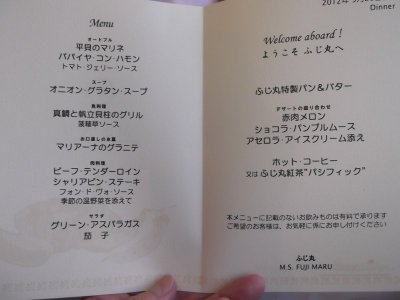 Menu
オードブル
平貝のマリネ
パパイヤ・コン・ハモン
トマト・ジェリー・ソース
スープ
オニオン・グラタン・スープ
魚料理
真鯛と帆立貝柱のグリル
菠薐草ソース
お口直しの氷菓
マリアーナのグラニテ
肉料理
ビーフ・テンダーロイン
シャリアピン・ステーキ
フォン・ド・ヴォ・ソース
季節の温野菜を添えて
サラダ
グリーン・アスパラガス
茄子
2012年
Dinner
Welcome aboard !
ようこそ ふじ丸へ
ふじ丸特製パン＆バター
デザートの盛り合わせ
赤肉メロン
ショコラ・バンブルムース
アセロラ・アイスクリーム添え
ホット・コーヒー
又は ふじ丸紅茶"パシフィック"
本メニューに記載のないお飲みものは有料で承ります
ご希望のお客様は、お気軽に係にお申し付けください
ふじ丸
M.S. FUJI MARU